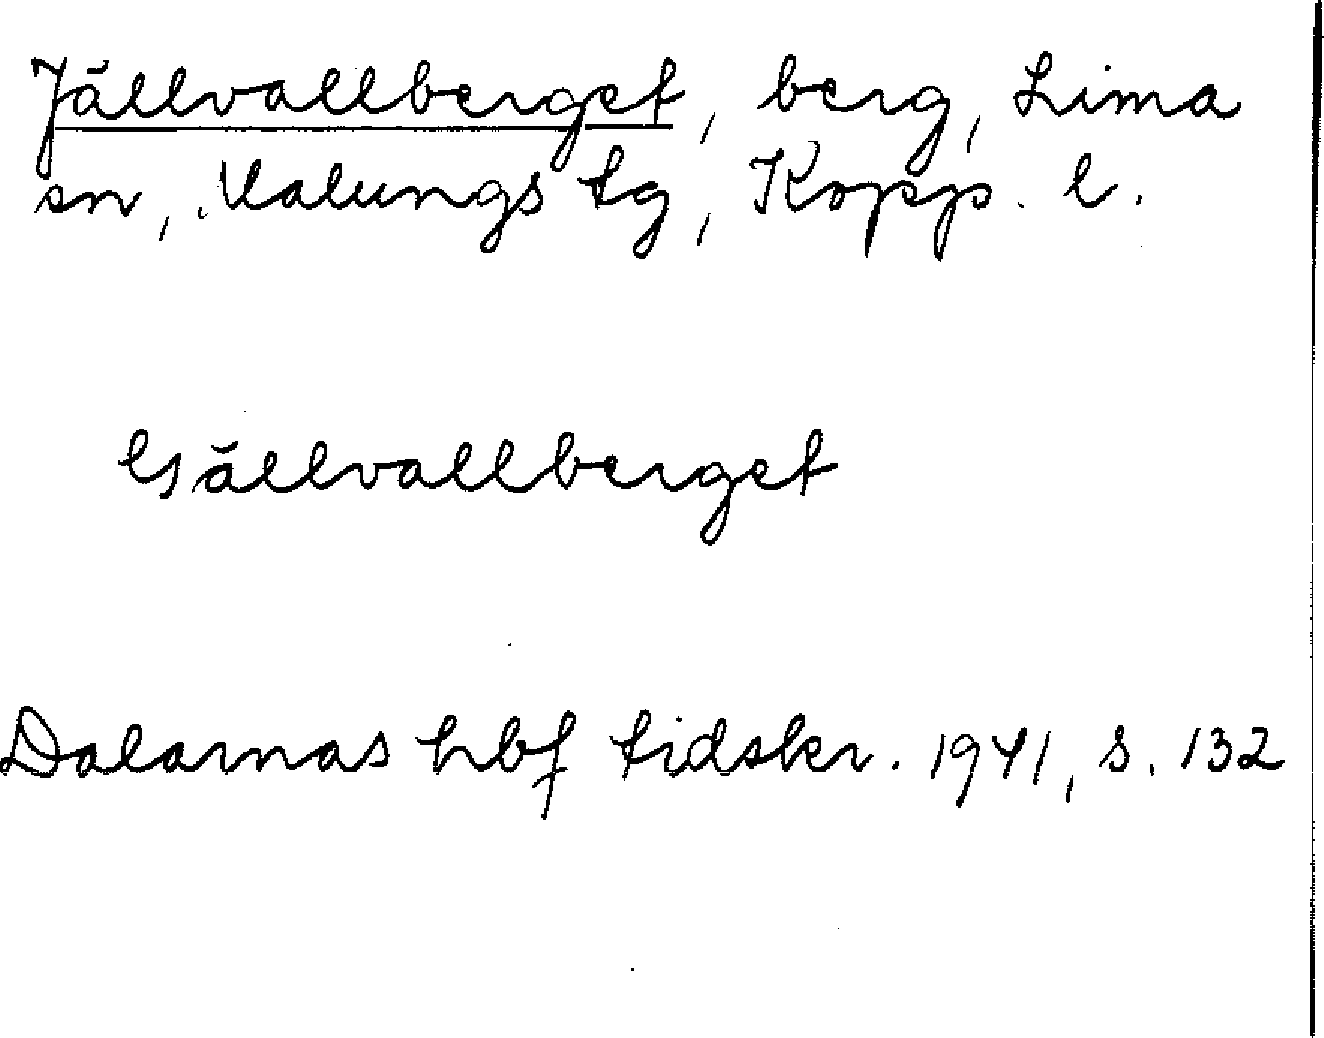 Jällvallberget, berg, Lima
sn, Malungs tg, Kopp. l.
Gällvallberget
Dalarnas hbf tidskr. 1941, s. 132